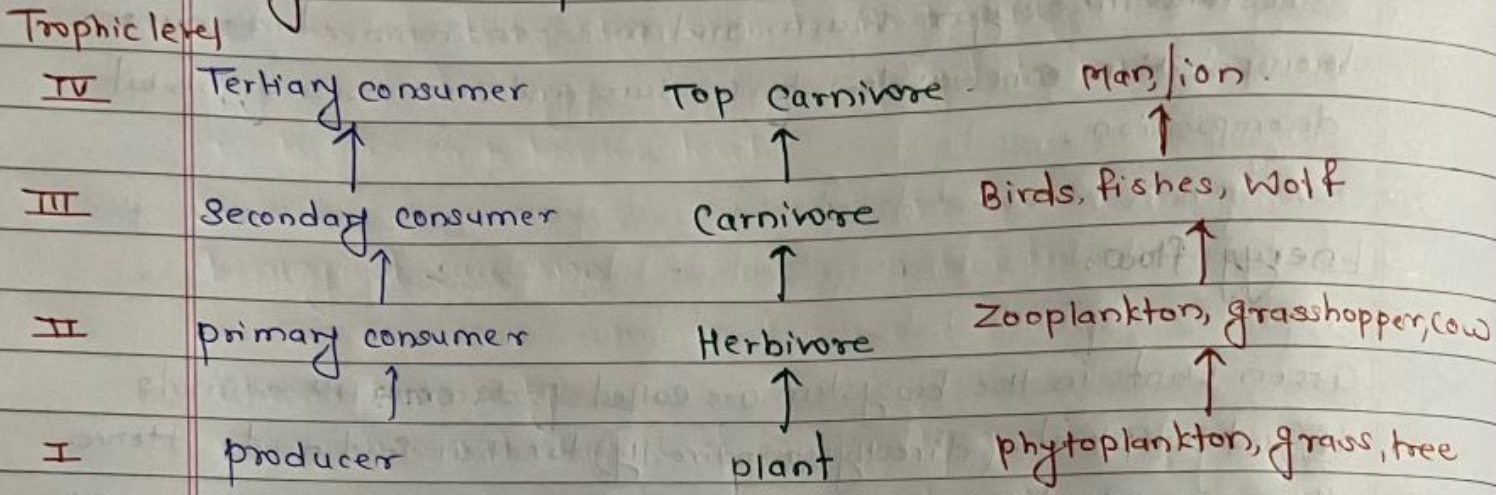 Trophic level
IV Tertiary consumer Top Carnivore Man, lion.
III Secondary consumer Carnivore Birds, fishes, Wolf
II primary consumer Herbivore Zooplankton, grasshopper, cow
I producer plant phytoplankton, grass, tree